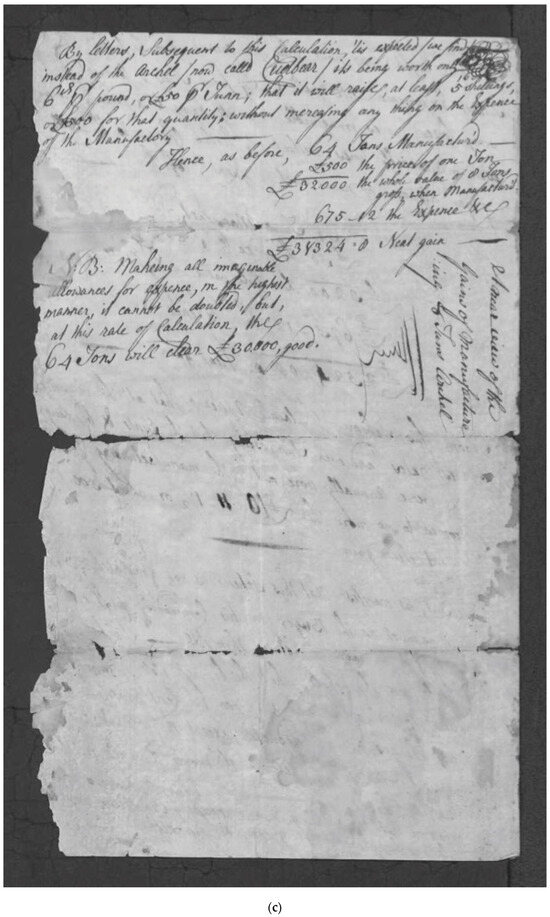 By letters, Subsequent to this Calculation, 'tis expected
instead of the Archel now called Cudbear / its being worth only
6 pound, or £50 Tunn; that it will raise, at least, 5 shillings,
or £500 for that quantity; without increasing any thing on the Expence
of the Manufactory
Hence, as before, 64 Tons Manufactur'd
£500 the price of one Ton
£32000 the whole value of Tons
when Manufactur'd
675 12 the Expence &c
Neat gain
N.B: Makeing all imaginable
allowances for expence, in the highest
manner, it cannot be doubted, but,
at this rate of Calculation, the
64 Tons will clear £30,000, good.
view of the
Gains of Manufacture
(c)